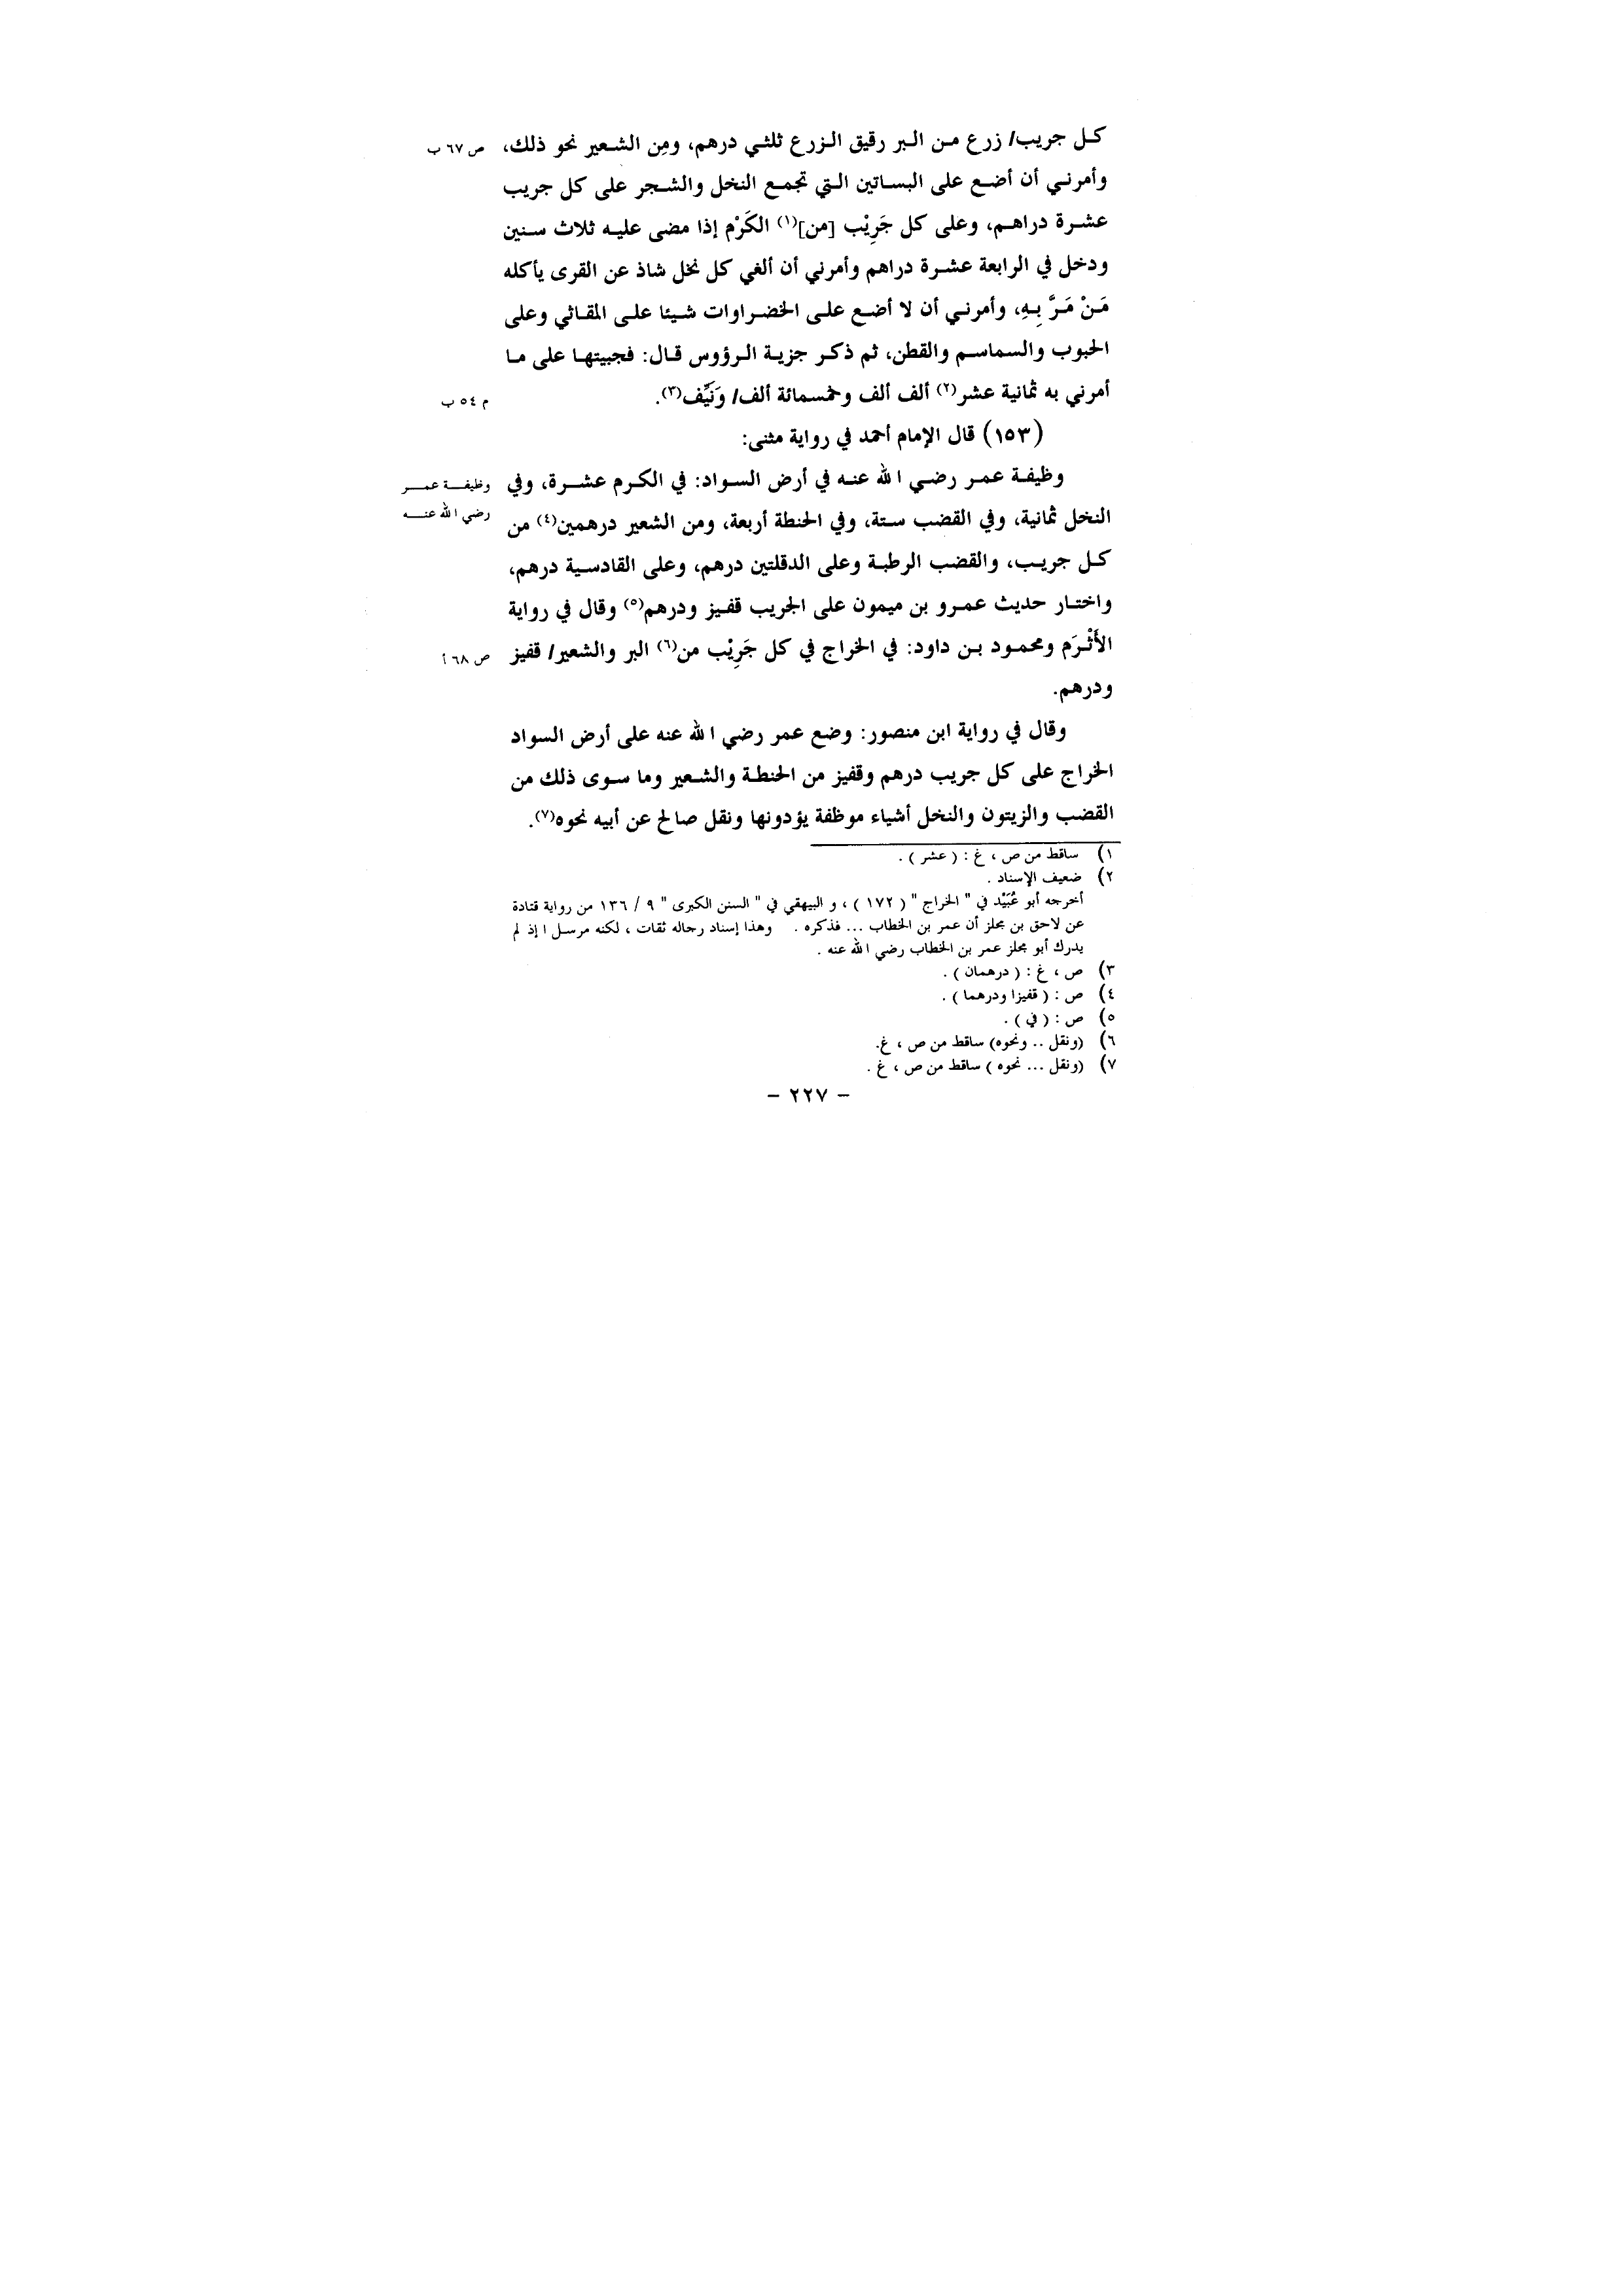 كل جريب/ زرع من البر رقيق الزرع ثلثي درهم، ومِن الشعير نحو ذلك، ص ٦٧ ب
وأمرني أن أضع على البساتين التي تجمع النخل والشجر على كل جريب
عشرة دراهم، وعلى كل جَرِيْب [من](١) الكَرْم إذا مضى عليه ثلاث سنين
ودخل في الرابعة عشرة دراهم وأمرني أن ألغي كل نخل شاذ عن القرى يأكله
مَنْ مَرَّ بِهِ، وأمرني أن لا أضع على الخضراوات شيئا على المقاثي وعلى
الحبوب والسماسم والقطن، ثم ذكر جزية الرؤوس قال: فجبيتها على ما
أمرني به ثمانية عشر(٢) ألف ألف وخمسمائة ألف/ وَنَيِّف(٣). م ٥٤ ب
(١٥٣) قال الإمام أحمد في رواية مثنى:
وظيفة عمر رضي الله عنه في أرض السواد: في الكرم عشرة، وفي وظيفة عمر
النخل ثمانية، وفي القضب ستة، وفي الحنطة أربعة، ومن الشعير درهمين(٤) من رضي الله عنه
كل جريب، والقضب الرطبة وعلى الدقلتين درهم، وعلى القادسية درهم،
واختار حديث عمرو بن ميمون على الجريب قفيز ودرهم(٥) وقال في رواية
الأَثْرَم ومحمود بن داود: في الخراج في كل جَرِيْب من(٦) البر والشعير/ قفيز ص ٦٨ أ
ودرهم.
وقال في رواية ابن منصور: وضع عمر رضي الله عنه على أرض السواد
الخراج على كل جريب درهم وقفيز من الحنطة والشعير وما سوى ذلك من
القضب والزيتون والنخل أشياء موظفة يؤدونها ونقل صالح عن أبيه نحوه(٧).
١) ساقط من ص ، غ : ( عشر ) .
٢) ضعيف الإسناد .
أخرجه أبو عُبَيْد في " الخراج " ( ١٧٢ ) ، و البيهقي في " السنن الكبرى " ٩ / ١٣٦ من رواية قتادة
عن لاحق بن مجلز أن عمر بن الخطاب ... فذكره . وهذا إسناد رجاله ثقات ، لكنه مرسل ا إذ لم
يدرك أبو مجلز عمر بن الخطاب رضي الله عنه .
٣) ص ، غ : ( درهمان ) .
٤) ص : ( قفيزا ودرهما ) .
٥) ص : ( في ) .
٦) (ونقل .. ونحوه) ساقط من ص ، غ.
٧) (ونقل ... نحوه ) ساقط من ص ، غ .
– ٢٢٧ –